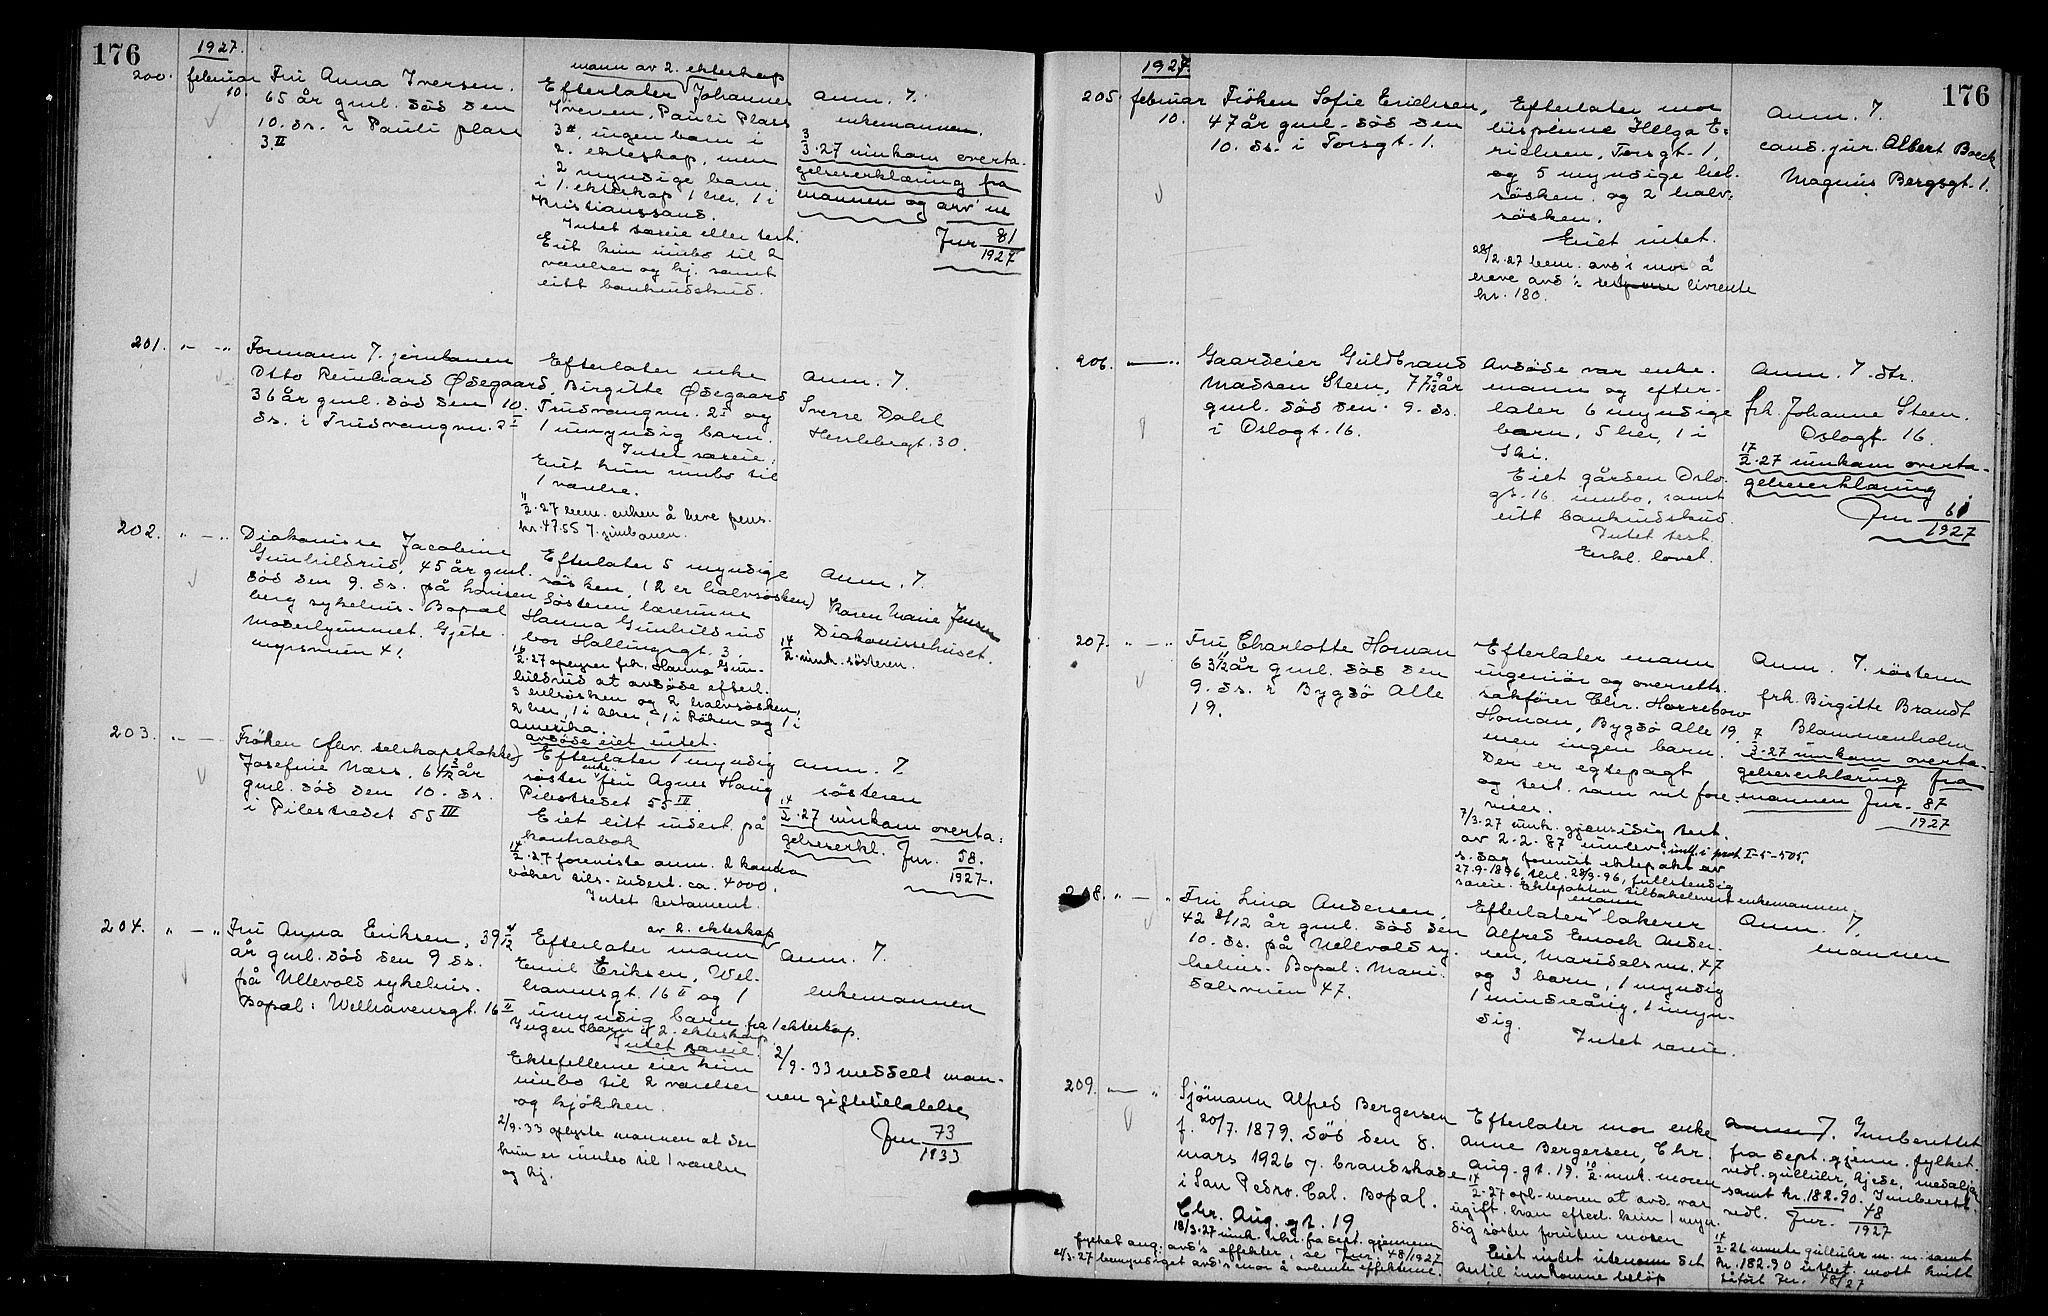 176
1927.
200. februar 10.
Fru Anna Iversen.
65 år gml. död den
10. ds. i Pauli plass
3.II
mann av 2. ekteskap
Efterlater Johannes
Iversen, Pauli Plass
3II, ingen barn i
2. ekteskap, men
2 myndige barn
i 1. ekteskap 1 her, 1 i
Kristianssand.
Intet særeie eller test.
Eiet kun innbo til 2
værelser og kj. samt
eitt bankindskud.
Anm. 7.
enkemannen.
3/3.27 innkom overta-
gelseserklæring fra
mannen og arv
Jur 81/1927
201. " - "
Formann v. jernbanen
Otto Reinhard Ødegaard,
36 år gml. död den 10.
ds. i Trudvangvn. 2I
Efterlater enke
Birgitte Ødegaard
Trudvangvn. 2I og
1 umyndig barn.
Intet særeie.
Eiet kun innbo til
1 værelse.
11/2.27 bem. enken å heve pens.
kr. 47.55 v. jernbanen.
Anm. 7.
Sverre Dahl
30.
202. " - "
Diakonisse Jacobine
Gunhildrud, 45 år gml.
död den 9. ds. på Lovisen
berg sykehus. Bopæl
Moderhjemmet. Gjete
myrsveien 41
Efterlater 5 myndige
søsken, (2 er halvsøsken)
Søsteren lærerinne
Hanna Gunhildrud
bor Hallingsgt. 3.
16/2.27 oplyser frk. Hanna Gun-
hildrud at avdöde efterl.
3 helsøsken og 2 halvsøsken,
2 her, 1 i Aker, 1 i Röken og 1 i
Amerika.
Avdöde eiet intet.
Anm. 7.
Karen Marie Jensen
Diakonissehuset.
14/2. innk. søsteren.
203. " - "
Fröken (fhv. selskapslokke)
Josefine Næss, 61 3/12 år
gml. död den 10. ds.
i Pilestredet 55III
Efterlater 1 myndig
søster enke fru Agnes Haug
Pilestredet 55III.
Eiet eitt indest. på
kontrabok
14/2.27 foreviste anm. 2 kontra
bøker tils. indest. ca. 4000.
Intet testament.
Anm. 7.
søsteren
14/2.27 innkom overta-
gelseserkl. Jur. 58./1927.
204. " - "
Fru Anna Eriksen, 39 4/12
år gml. död den 9 ds.
på Ullevold sykehus.
Bopæl: Welhavensgt. 16II
av 2. ekteskap
Efterlater mann
Emil Eriksen, Wel-
havensgt. 16II og 1
umyndig barn fra 1 ekteskap.
Ingen barn i 2. ekteskap
Intet særeie.
Ektefellene eier kun
innbo til 2 værelser
og kjökken.
2/9.33 oplyste mannen at der
kun er innbo til 1 værelse
og kj.
Anm. 7.
enkemannen
2/9.33 meddelt man-
nen giftetillatelse
Jur 73/1933
176
1927.
205. februar 10.
Fröken Sofie Erichsen,
47 år gml. död den
10. ds. i Torsgt. 1.
Efterlater mor
Helga E-
richsen, Torsgt. 1,
og 5 myndige hel-
søsken og 2 halv-
søsken.
Eiet intet.
28/2.27 bem. avd's mor å
heve avd's livrente
kr. 180.
Anm. 7.
cand. jur. Albert Boeck
Magnus Bergsgt. 1.
206. — "
Gaardeier Guldbrand
Madsen Steen, 77 9/12 år
gml. död den 9. ds.
i Oslogt. 16.
Avdöde var enke-
mann og efter-
later 6 myndige
barn, 5 her, 1 i
Ski.
Eiet gården Oslo-
gt. 16 innbo, samt
eitt bankindskud.
Intet test.
Erkl. lovet.
Anm. 7. dtr.
frk. Johanne Steen.
Oslogt. 16.
17/2.27 innkom overta-
gelseserklæring
Jur 61/1927
207. " - "
Fru Charlotte Homan
63 1/12 år gml. död den
9. ds. i Bygdö Alle
19.
Efterlater mann
ingeniör og overretts-
sakförer Chr. Horrebow
Homan, Bygdö Alle 19
men ingen barn.
Der er egtepagt
og test. som vil fore-
vises.
7/3.27 innk. gjensidig test.
av 2.2.87 innf. i prot. I-5-505.
s. dag forevist ektepakt av
27.9.1896, tinl. 28/9.96, fullstendig
særeie. Ektepakten tilbakelevert enkemannen.
Anm. 7. søsteren
frk. Birgitte Brandt
Blommenholm
7/3.27 innkom overta-
gelseserklæring fra
mannen Jur. 87/1927
208. " - "
Fru Lina Andersen,
42 8/12 år gml. död den
10. ds. på Ullevold sy-
kehus. Bopæl: Mari-
dalsveien 47.
Efterlater mann lakerer
Alfred Enoch Ander-
sen, Maridalsvn. 47
og 3 barn, 1 myndig
1 mindreårig, 1 umyn-
dig.
Intet særeie.
Anm. 7.
mannen
209. — "
Sjömann Alfred Bergersen
f. 20/7. 1879. död den 8.
mars 1926 v. brandskade
i San Pedro. Cal. Bopæl.
Chr. Aug. gt. 19
18/3.27 innk. skr. fra dept. gjennem
fylket ang. avd's effekter, se Jur. 48/1927
21/3.27 bemyndiget avd's mor å avhente effektene.
Efterlater mor enke
Anne Bergersen, Chr.
Aug. gt. 19. 10/2 innk. moren
17/2.27 opl. moren at avd. var
ugift, han efterl. kun 1 myn-
dig søster foruten moren
Eiet intet utenom det
dertil innkomne beløp
Anm. 7. Innberettet
fra dept. gjenn. fylket.
vedl. gullur, kjede, medaljer
samt kr. 182.90. Innberetn.
vedl. Jur. 48/1927
14/2.26 gullur m. m. samt
kr. 182.90 utlev. mott kvitt
tilfört Jur. 48/27